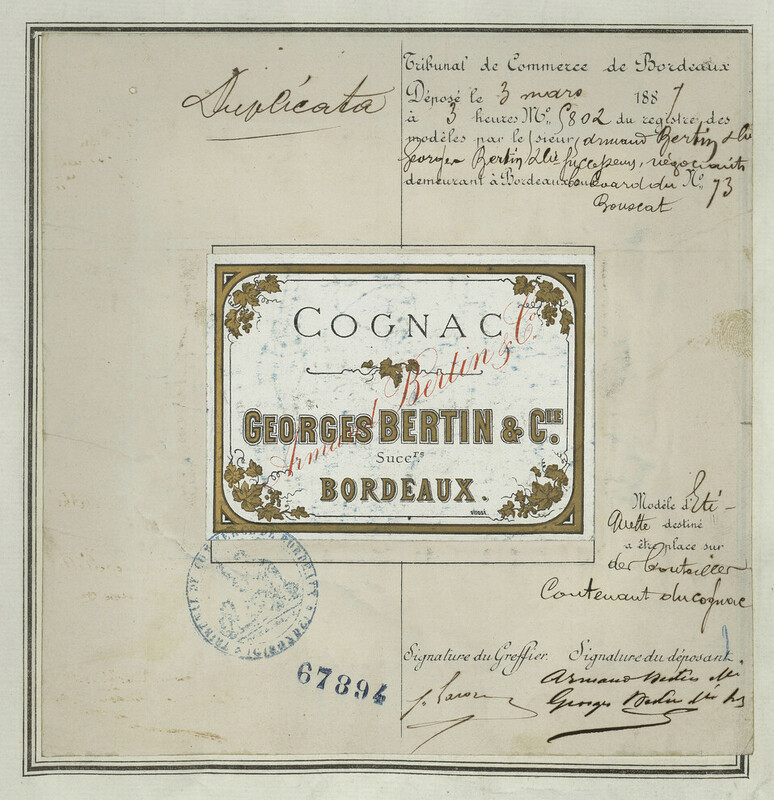 Duplicata
Tribunal de Commerce de Bordeaux
Déposé le 3 mars 1887
à 3 heures No. 5802 du registre des
modèles par le sieur Armand Bertin & Cie
Georges Bertin & Cie successeurs, négociants
demeurant à Bordeaux boulevard du No. 73
Bouscat
COGNAC
Armand Bertin & Co.
GEORGES BERTIN & CIE.
Succrs
BORDEAUX.
Modèle d'Eti-
quette destiné
a être place sur
des bouteilles
Contenant du cognac
TRIBUNAL DE COMMERCE DE BORDEAUX
67894
Signature du Greffier. Signature du déposant.
Armand Bertin & Cie
Georges Bertin & Cie